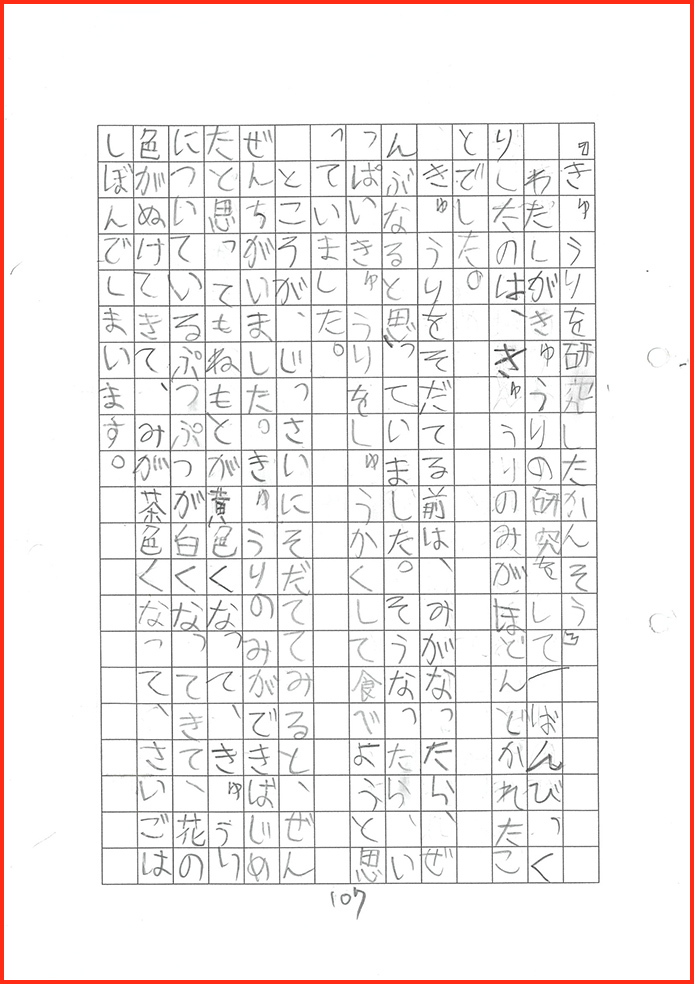 『きゅうりを研究したかんそう』
わたしがきゅうりの研究をして一ばんびっく
りしたのは、きゅうりのみがほとんどかれたこ
とでした。
きゅうりをそだてる前は、みがなったら、ぜ
んぶなると思っていました。そうなったら、い
っぱいきゅうりをしゅうかくして食べようと思
っていました。
ところが、じっさいにそだててみると、ぜん
ぜんちがいました。きゅうりのみができばじめ
たと思ってもねもとが黄色くなって、きゅうり
についているぷつぷつが白くなってきて、花の
色がぬけてきて、みが茶色くなって、さいごは
しぼんでしまいます。
107